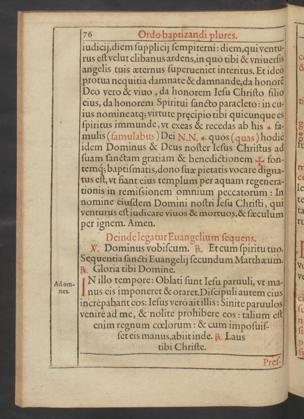 76 Ordo baptizandi plures.
iudicij, diem supplicij sempiterni: diem, qui ventu-
rus est velut clibanus ardens, in quo tibi & vniuersis
angelis tuis æternus superueniet interitus. Et ideò
protua nequitia damnate & damnande, da honorē
Deo vero & viuo, da honorem Iesu Christo filio
eius, da honorem Spiritui sancto paracleto: in cu-
ius nomine atq; virtute pręcipio tibi quicunque es
spiritus immunde, vt exeas & recedas ab his * fa-
mulis (famulabus) Dei N.N. * quos (quas) hodiè
idem Dominus & Deus noster Iesus Christus ad
suam sanctam gratiam & benedictionem ✠ fon-
temq; baptismatis, dono suæ pietatis vocare digna-
tus est, vt fiant eius templum per aquam regenera-
tionis in remissionem omnium peccatorum: In
nomine eiusdem Domini nostri Iesu Christi, qui
venturus est iudicare viuos & mortuos, & sæculum
per ignem. Amen.
Deinde legatur Euangelium sequens.
℣. Dominus vobiscum. ℟. Et cum spiritu tuo.
Sequentia sancti Euangelij secundum Matthæum.
℟. Gloria tibi Domine.
Ad om-
nes.
IN illo tempore: Oblati sunt Iesu paruuli, vt ma-
nus eis imponeret & oraret. Discipuli autem eius
increpabant eos: Iesus verò ait illis: Sinite paruulos
venire ad me, & nolite prohibere eos: talium est
enim regnum cœlorum: & cum imposuis-
set eis manus, abiit inde. ℟. Laus
tibi Christe.
Pres-